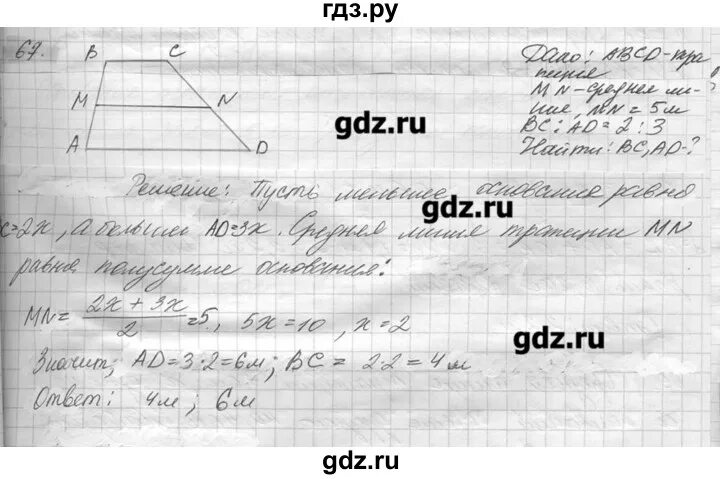 гдз.ру
67.
B C
M N
A D
Дано: ABCD-тра
пеция
MN-средняя ли-
ние, MN = 5м
BC : AD = 2 : 3
Найти: BC, AD-?
gdz.ru
Решение: Пусть меньшее основания равна
gdz.ru
C=2x, а большим AD=3x. Средняя линия трапеции MN
равна полусумме основания:
MN= 2x + 3x / 2 =5, 5x=10, x=2
gdz.ru
Значит, AD=3·2=6м; BC= 2·2=4м
Ответ: 4м; 6м
gdz.ru
gdz.ru